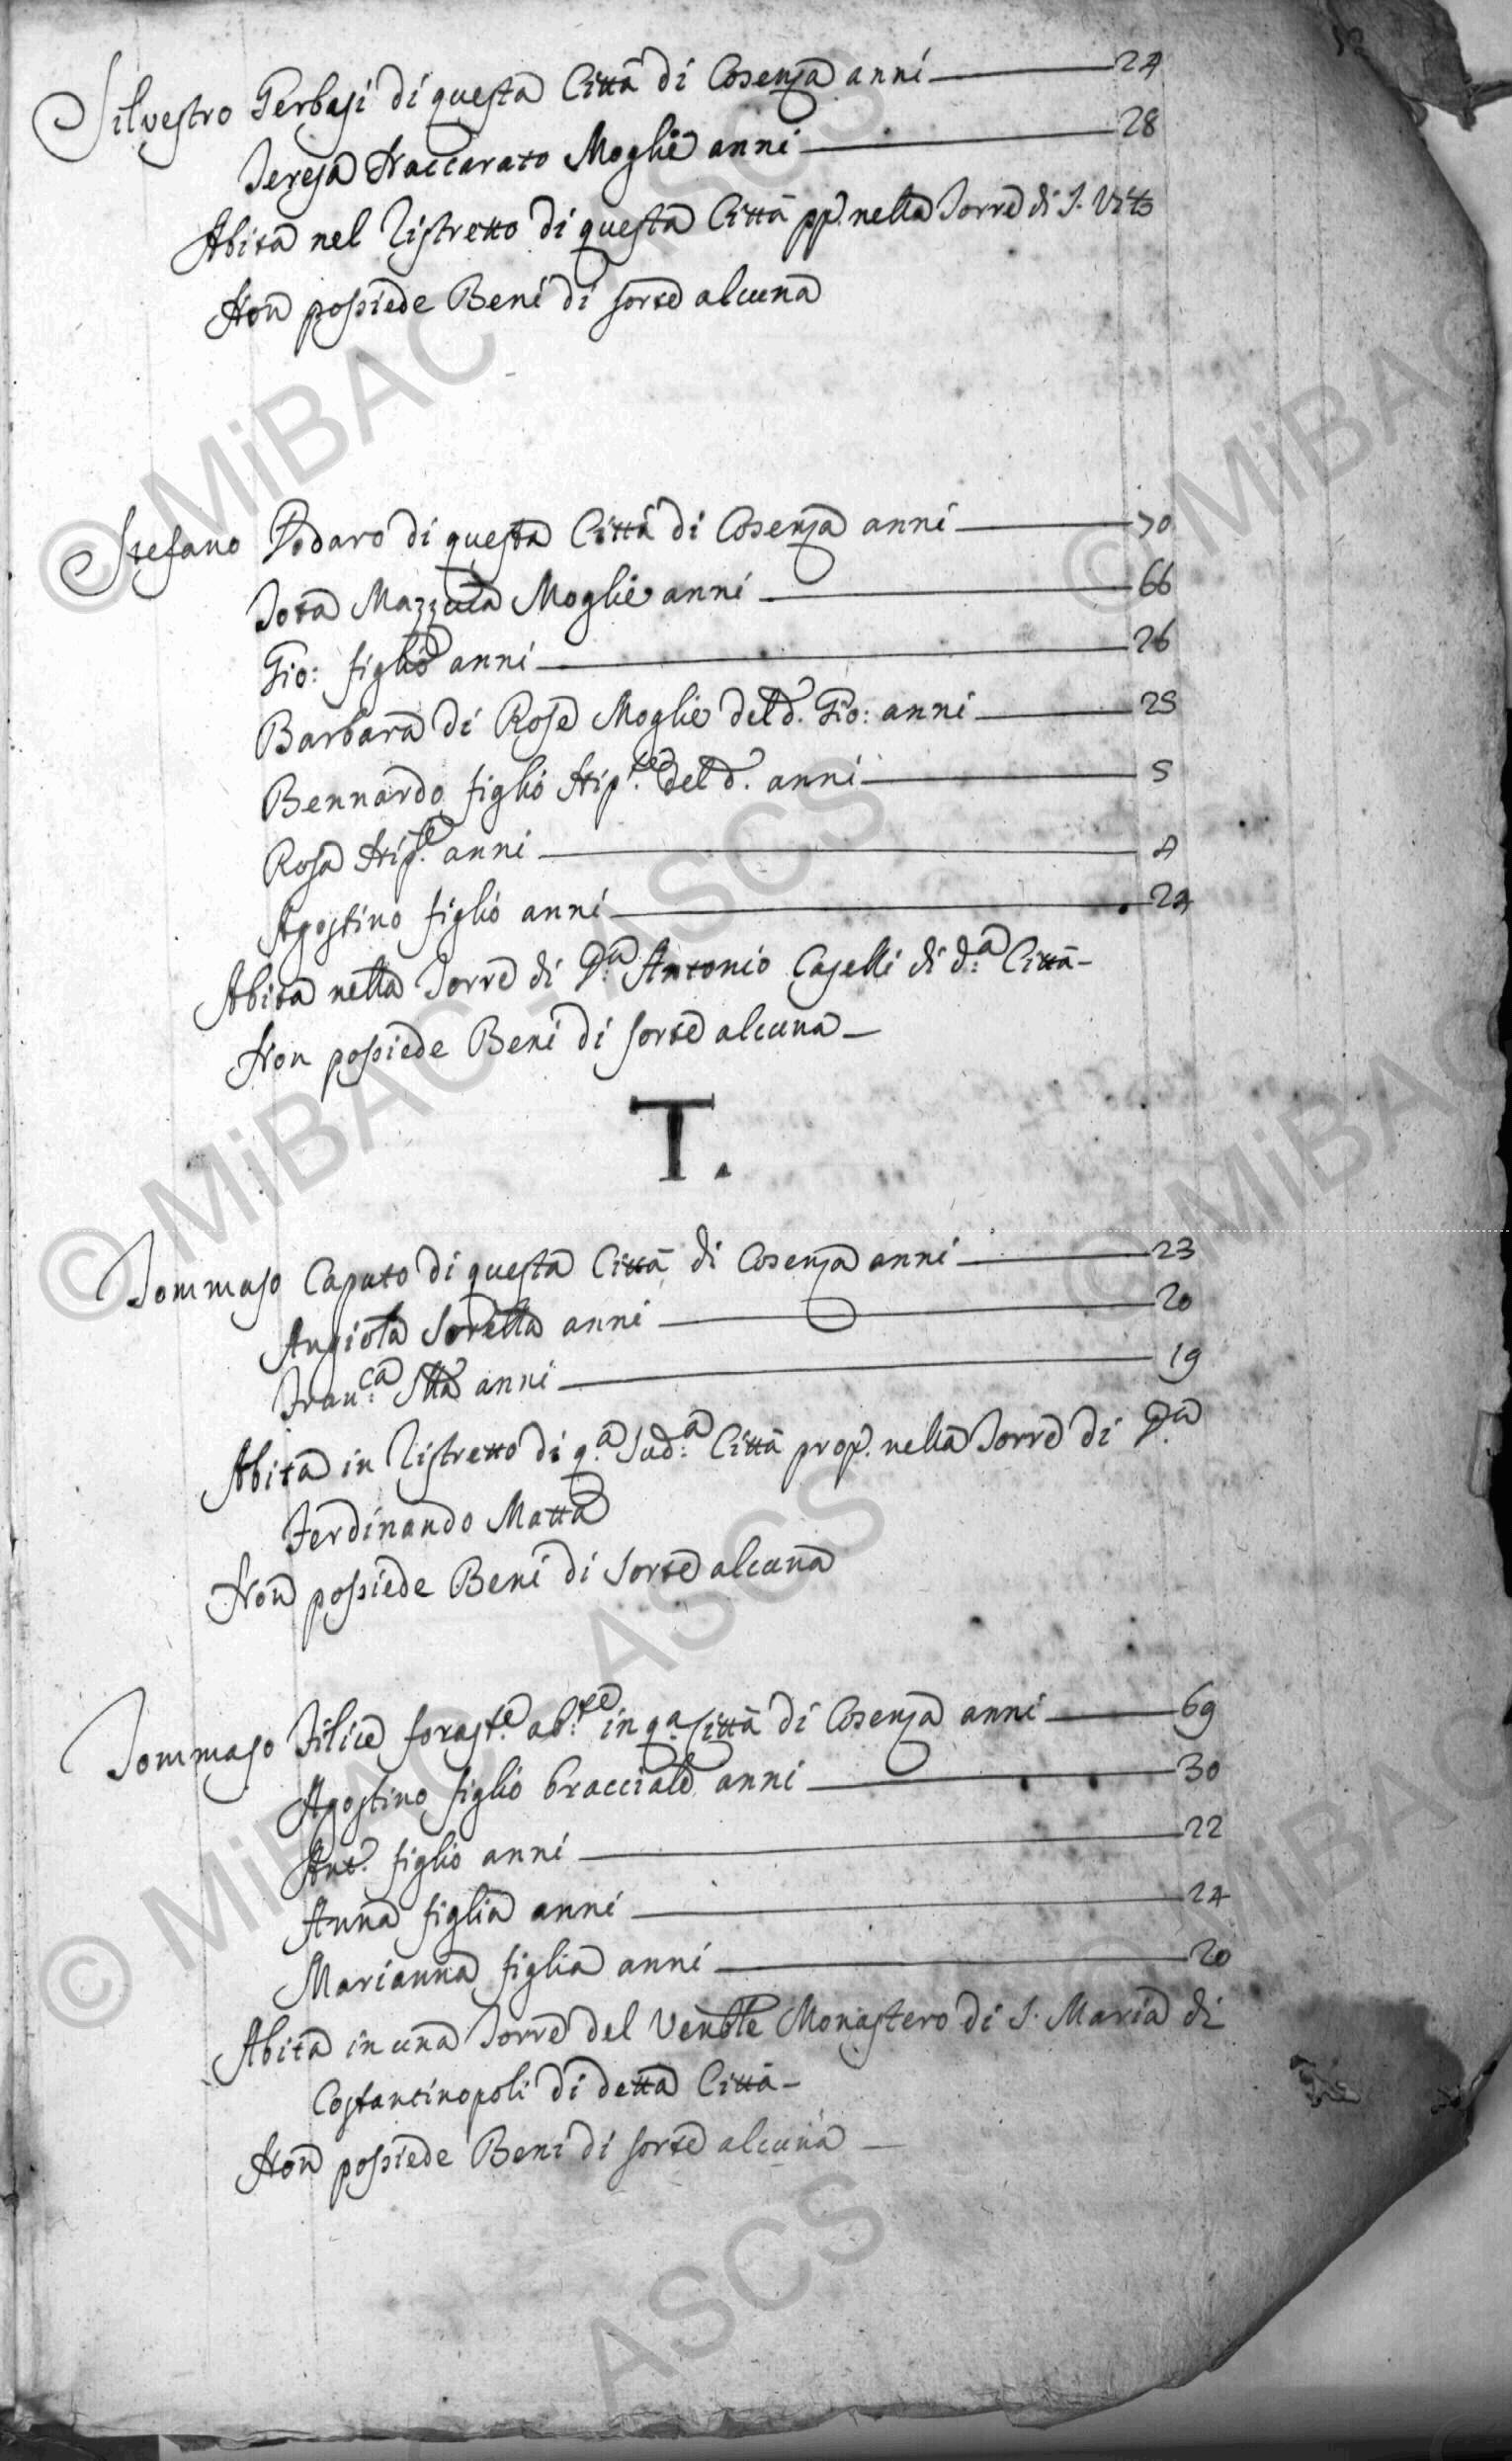 Silvestro Gerbasi di questa Città di Cosenza anni 24
Teresa Naccarato Moglie anni 28
Abita nel Ristretto di questa Città pp. nella Torre di S. Vito
Non possiede Beni di sorte alcuna
Stefano Podaro di questa Città di Cosenza anni 70
Mazzuca Moglie anni 66
Gio: figlio anni 26
Barbara di Rose Moglie del d. Gio: anni 25
Bennardo figlio Nip.te del d. anni 5
Rosa Nip.te anni 4
Agostino figlio anni 24
Abita nella Torre di D.n Antonio Caselli di d.a Città
Non possiede Beni di sorte alcuna
T.
Tommaso Caputo di questa Città di Cosenza anni 23
Angiola Sorella anni 20
Fran.ca Slla anni 19
Abita in Ristretto di q.a Sud.a Città prop. nella Torre di D.n
Ferdinando Matta
Non possiede Beni di Sorte alcuna
Tommaso Filice forast.e ab.te in q.a Città di Cosenza anni 69
Agostino figlio bracciale anni 30
Ant.o figlio anni 22
Anna figlia anni 24
Marianna figlia anni 20
Abita in una Torre del Venble Monastero di S. Maria di
Costantinopoli di detta Città
Non possiede Beni di sorte alcuna
© MiBAC - ASCS